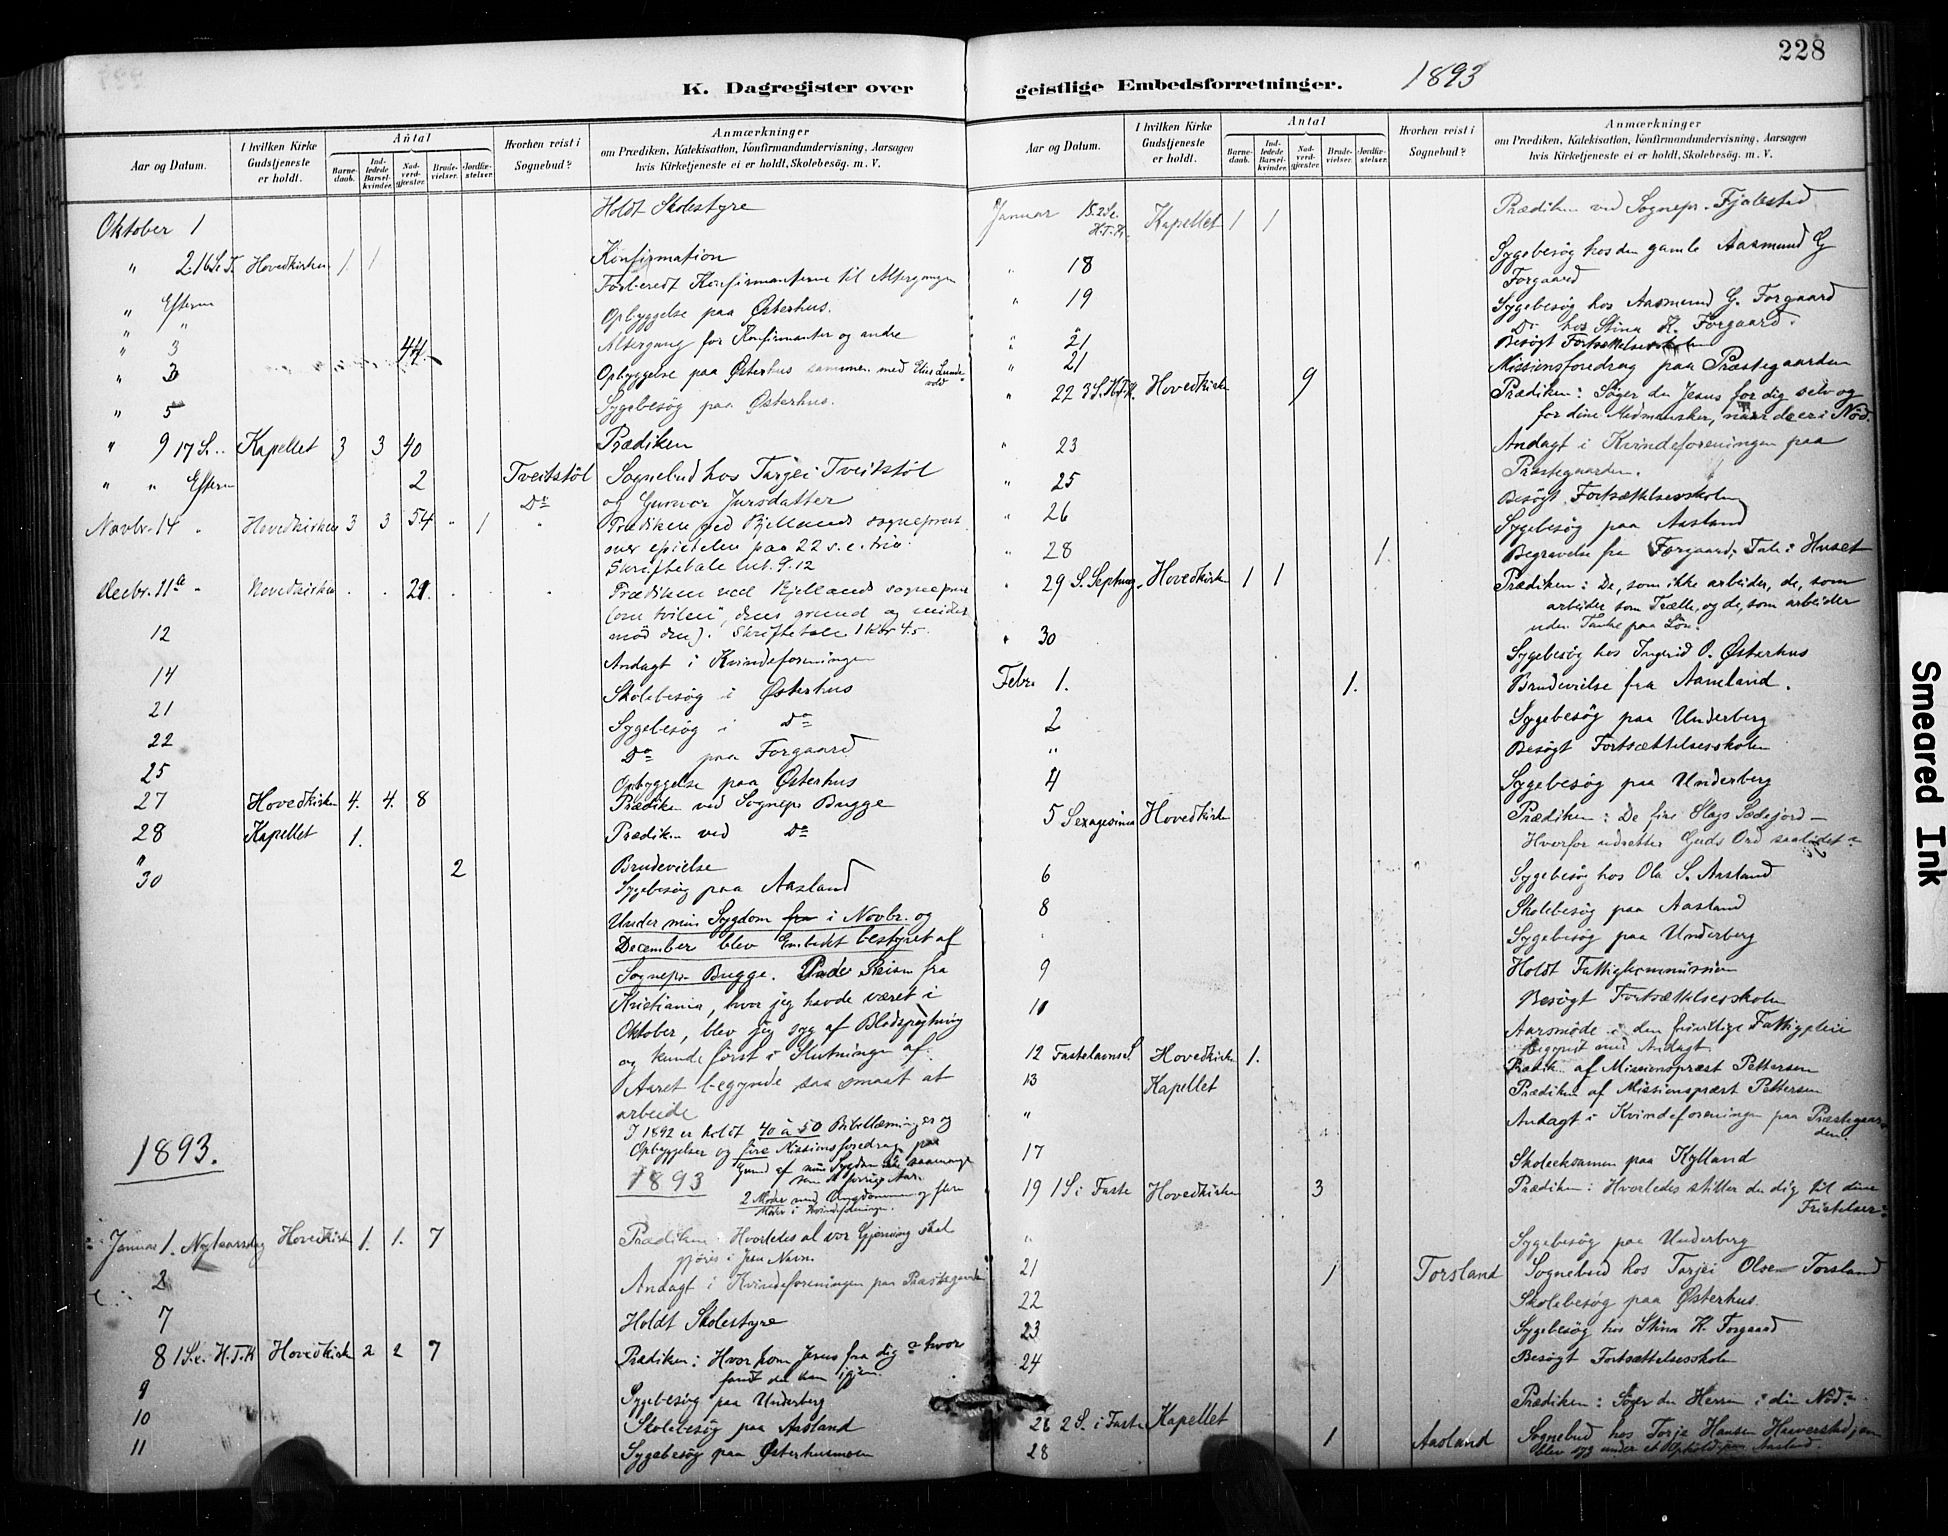 228
K. Dagregister over geistlige Embedsforretninger. 1893
Aar og Datum. I hvilken Kirke Gudstjeneste er holdt. Antal Barnedaab. Indledede Barselkvinder. Nadverdgjester. Brudevielser. Jordfæstelser. Hvorhen reist i Sognebud? Anmærkninger om Prædiken, Katekisation, Konfirmandundervisning, Aarsagen hvis Kirketjeneste ei er holdt, Skolebesög. m. V.
Oktober 1 Holdt Skolestyre
" 2 16 S. T. Hovedkirken 1 1 Konfirmation
Forberedt Konfirmanterne til Altergangen
" Efterm Opbyggelse paa Østerhus.
" 3 44 Altergang for Konfirmanter og andre
" 3 Opbyggelse paa Østerhus sammen med Elias Lundevold
" 5 Sygebesøg paa Østerhus.
" 9 17 S. Kapellet 3 3 40 Prædiken
" " Efterm 2 Tveitstöl Sognebud hos Tarjei Tveitstöl
D° og Gunvor Jursdatter
Novbr. 14 " Hovedkirken 3 3 54 " 1 " Prædiken ved Bjellands sogneprest
over epistelen paa 22 s. e. trin.
Skriftetale Luk. 9. 12
Decbr. 11a " Hovedkirken . . 21 . . Prædiken ved Bjellands sogneprest
(om tvilen, dens grund og midler
mod den). Skriftetale 1 Kor 4.5.
12 Andagt i Kvindeforeningen
14 Skolebesøg i Østerhus
21 Sygebesøg i D°
22 D° paa Forgaard
25 Opbyggelse paa Østerhus
27 Hovedkirken 4. 4. 8 Prædiken ved Sognepr Bugge
28 Kapellet 1. Prædiken ved D°
" 2 Brudevielse
30 Sygebesøg paa Aasland
Under min Sygdom i Novbr. og
December blev Embedet bestyret af
Sognepr Bugge. Under Reisen fra
Kristiania, hvor jeg havde været i
Oktober, blev jeg syg af Blodspytning
og kunde först i Slutningen af
Aaret begynde saa smaat at
arbeide
I 1892 er holdt 40 à 50 Bibellæsninger og
Opbyggelser og fire Missionsforedrag, paa
Grund af min Sygdom ikke saamange
som de forrige Aar.
2 Møder med Ungdommen og flere
Møder i Kvindeforeningen.
1893.
1893
Januar 1. Nytaarsdag Hovedkirken 1. 1. 7 Prædiken: Hvorledes al vor Gjerning skal
gjöres i Jesu Navn.
2 Andagt i Kvindeforeningen paa Præstegaarden
7 Holdt Skolestyre
8 1 S. e. H.T.K Hovedkirken 2 2 7 Prædiken: Hvor kom Jesus fra dig og hvor
fandt du ham igjen.
9 Sygebesøg paa Underberg
10 Skolebesøg paa Aasland
11 Sygebesøg paa Østerhusmoen
Aar og Datum. I hvilken Kirke Gudstjeneste er holdt. Antal Barnedaab. Indledede Barselkvinder. Nadverdgjester. Brudevielser. Jordfæstelser. Hvorhen reist i Sognebud? Anmærkninger om Prædiken, Katekisation, Konfirmandundervisning, Aarsagen hvis Kirketjeneste ei er holdt, Skolebesög. m. V.
Januar 15. 2 S. H.T.K. Kapellet 1 1 Prædiken ved Sognepr. Fjalestad
" 18 Sygebesøg hos den gamle Aasmund G
Forgaard
" 19 Sygebesøg hos Aasmund G. Forgaard
D° hos Stina K. Forgaard.
" 21 Besøgt Fortsættelsesskolen
" 21 Missionsforedrag paa Præstegaarden
" 22 3 S. H.T.K. Hovedkirken 9 Prædiken: Søger du Jesus for dig selv og
for dine Medmensker, naar de er i Nød.
" 23 Andagt i Kvindeforeningen paa
Præstegaarden.
" 25 Besøgt Fortsættelsesskolen
" 26 Sygebesøg paa Aasland
" 28 1. Begravelse fra Forgaard. Tale i Huset
" 29 S. Septuag. Hovedkirken 1 1 Prædiken: De, som ikke arbeider, de, som
arbeider som Trælle, og de, som arbeider
uden Tanke paa Løn.
" 30 Sygebesøg hos Ingerid O. Østerhus
Febr. 1. 1. Brudevielse fra Aamland.
2 Sygebesøg paa Underberg
" Besøgt Fortsættelsesskolen
4 Sygebesøg paa Underberg
5 Sexagesima Hovedkirken Prædiken: De fire Slags Sædejord –
Hvorfor udretter Guds Ord saa lidet
6 Sygebesøg hos Ola S. Aasland
8 Skolebesøg paa Aasland
Sygebesøg paa Underberg
9 Holdt Fattigkommission
10 Besøgt Fortsættelsesskolen
Aarsmøde i den frivillige Fattigpleie
begyndt med Andagt
12 Fastelavns S. Hovedkirken 1. Prædik. af Missionspræst Pettersen
13 Kapellet Prædiken af Missionspræst Pettersen
" Andagt i Kvindeforeningen paa Præstegaarden.
17 Skoleeksamen paa Kylland
19 1 S i Faste Hovedkirken 3 Prædiken: Hvorledes stiller du dig til dine
Fristelser
" Sygebesøg paa Underberg
21 1 Torsland Sognebud hos Tarjei Olsen Torsland
22 Skolebesøg paa Østerhus
23 Sygebesøg hos Stina K. Forgaard
24 Besøgt Fortsættelsesskolen
26 2 S. i Faste Kapellet Prædiken: Søger du Herren i din Nød?
28 1 Aasland Sognebud hos Terje Hansen
blev syg under et Ophold paa Aasland.
Smeared Ink